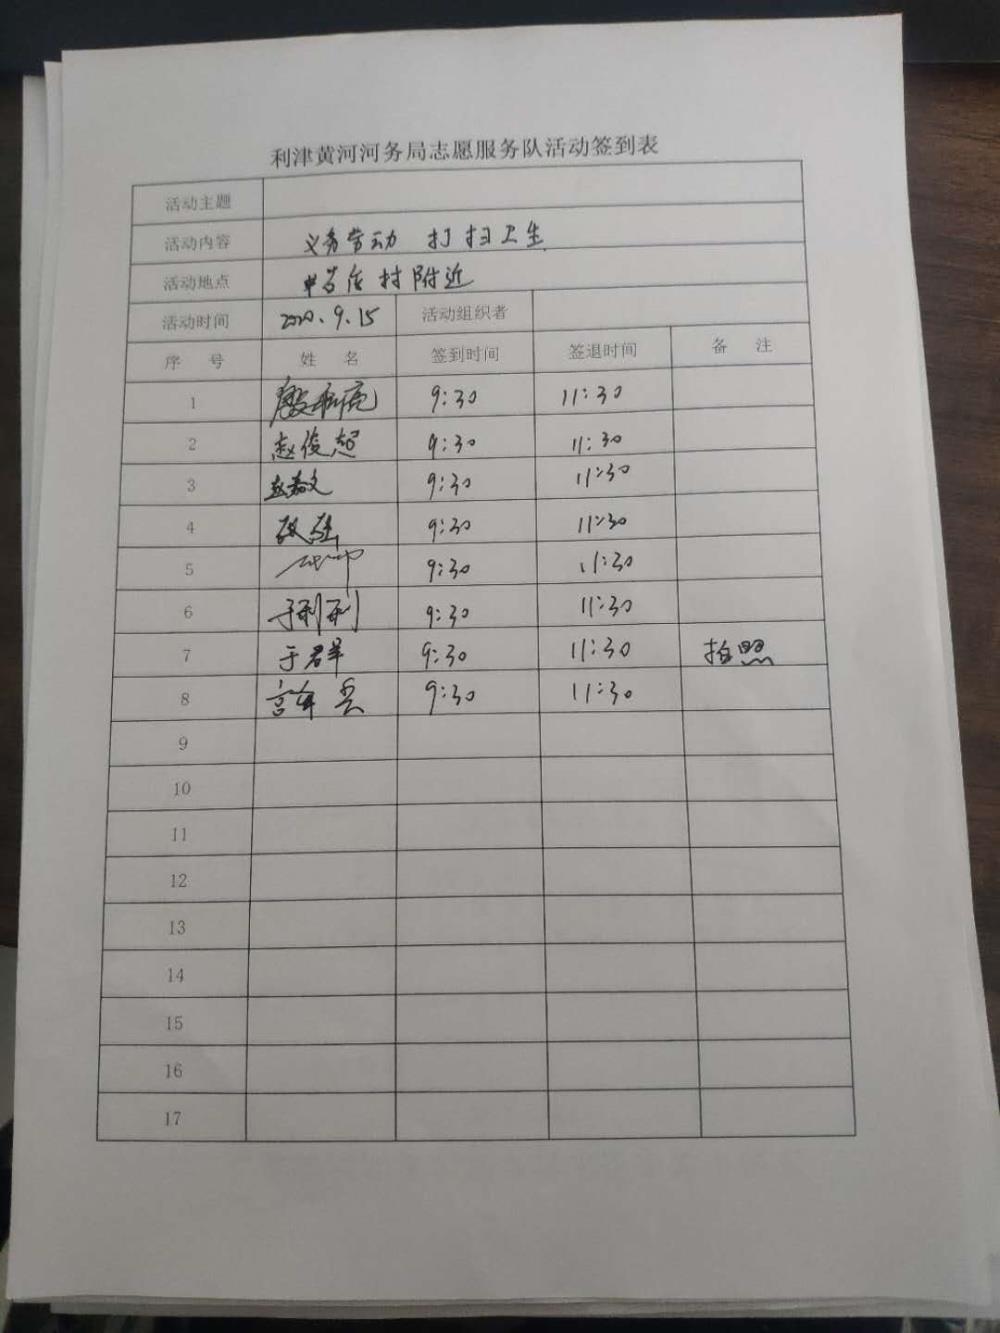 利津黄河河务局志愿服务队活动签到表
活动主题
活动内容 义务劳动 打扫卫生
活动地点 村附近
活动时间 2020.9.15 活动组织者
序 号 姓 名 签到时间 签退时间 备 注
1 9:30 11:30
2 赵俊超 9:30 11:30
3 9:30 11:30
4 9:30 11:30
5 9:30 11:30
6 于利利 9:30 11:30
7 于群 9:30 11:30 拍照
8 9:30 11:30
9
10
11
12
13
14
15
16
17